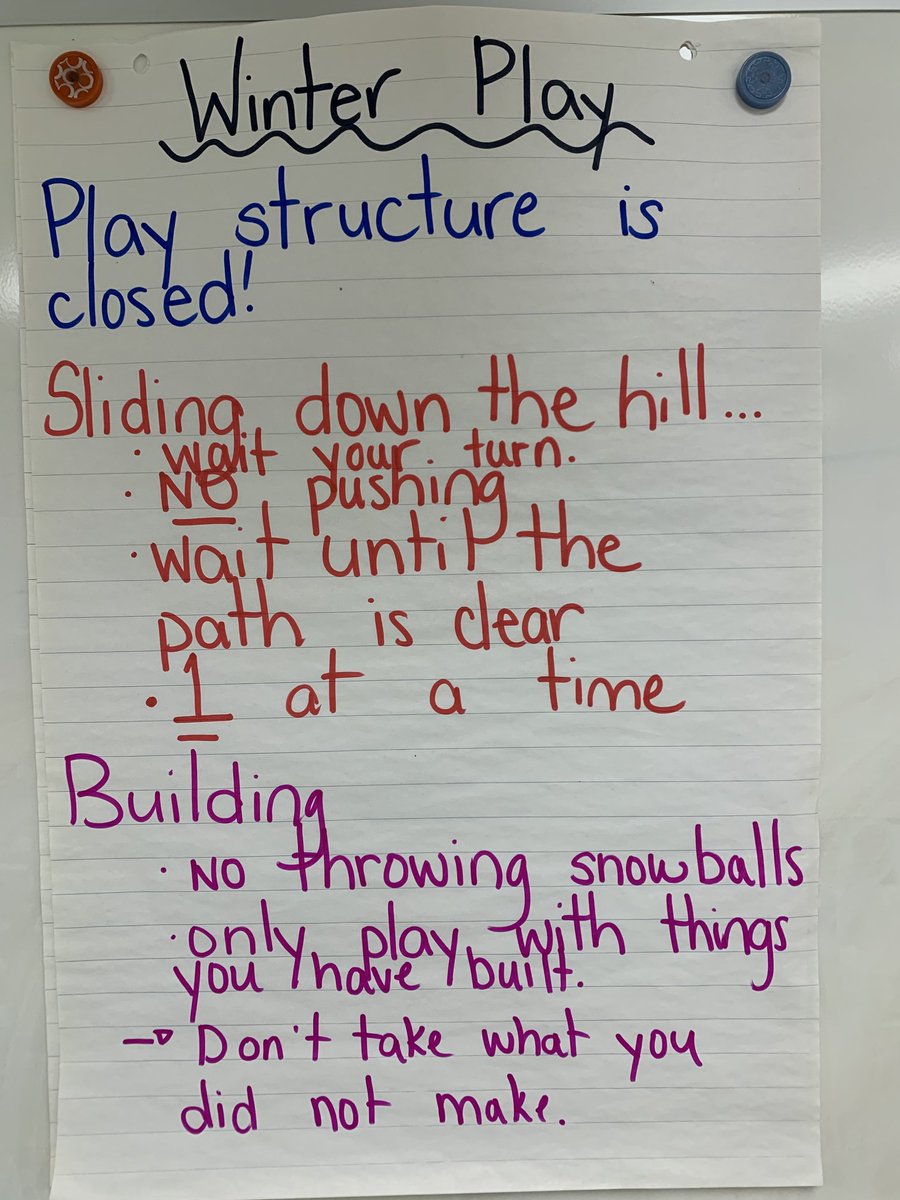 Winter Play
Play structure is
closed!
Sliding down the hill...
· wait your turn.
· NO pushing
· wait until the
path is clear
· 1 at a time
Building
· NO throwing snowballs
· only play with things
you have built.
→ Don't take what you
did not make.